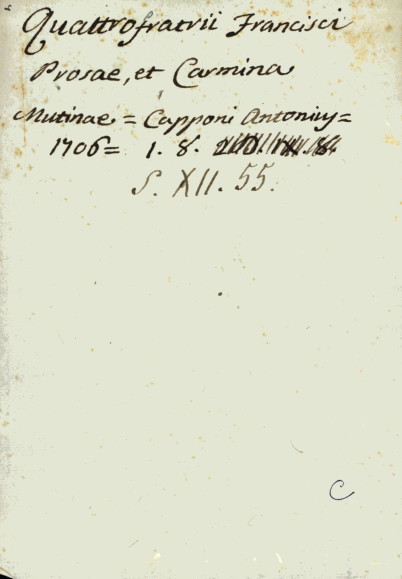 Quattrofratrii Francisci
Prosae, et Carmina
Mutinae = Capponi Antonius =
1706 = 1. 8.
S. XII. 55.
C